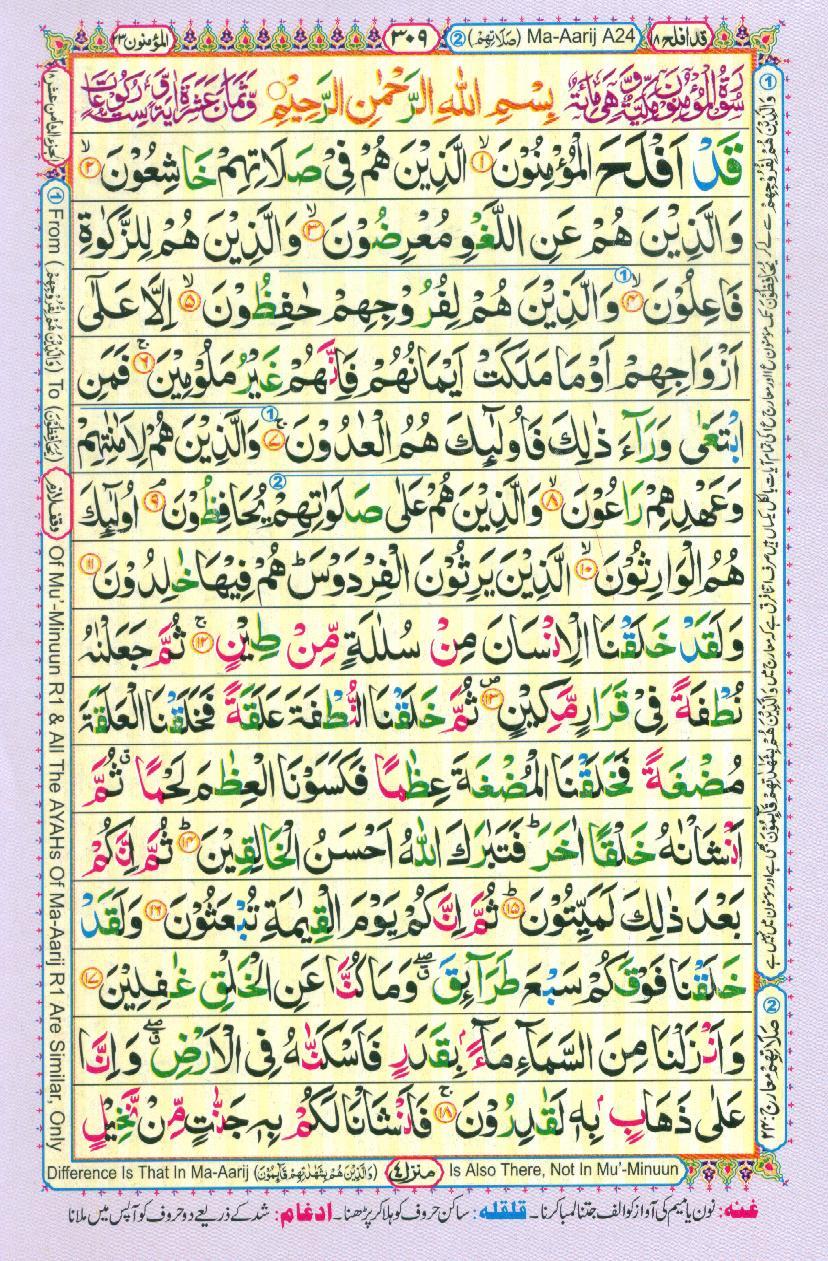 قد افلح ۱۸ Ma-Aarij A24 (صَلَاتِهِمْ) ② ۳۰۹ المؤمنون ۲۳
بِسْمِ اللهِ الرَّحْمٰنِ الرَّحِيْمِ
قَدْ اَفْلَحَ الْمُؤْمِنُوْنَ ۙ﴿۱﴾ الَّذِيْنَ هُمْ فِىْ صَلَاتِهِمْ خَاشِعُوْنَ ۙ﴿۲﴾
وَالَّذِيْنَ هُمْ عَنِ اللَّغْوِ مُعْرِضُوْنَ ۙ﴿۳﴾ وَالَّذِيْنَ هُمْ لِلزَّكٰوةِ
فَاعِلُوْنَ ۙ﴿۴﴾ ① وَالَّذِيْنَ هُمْ لِفُرُوْجِهِمْ حٰفِظُوْنَ ۙ﴿۵﴾ اِلَّا عَلٰٓى
اَزْوَاجِهِمْ اَوْ مَا مَلَكَتْ اَيْمَانُهُمْ فَاِنَّهُمْ غَيْرُ مَلُوْمِيْنَ ۚ﴿۶﴾ فَمَنِ
ابْتَغٰى وَرَآءَ ذٰلِكَ فَاُولٰٓئِكَ هُمُ الْعٰدُوْنَ ۚ﴿۷﴾ ① وَالَّذِيْنَ هُمْ لِاَمٰنٰتِهِمْ
وَعَهْدِهِمْ رَاعُوْنَ ۙ﴿۸﴾ وَالَّذِيْنَ هُمْ عَلٰى صَلَوٰتِهِمْ ② يُحَافِظُوْنَ ۘ﴿۹﴾ اُولٰٓئِكَ
هُمُ الْوَارِثُوْنَ ۙ﴿۱۰﴾ الَّذِيْنَ يَرِثُوْنَ الْفِرْدَوْسَ ؕ هُمْ فِيْهَا خٰلِدُوْنَ ﴿۱۱﴾
وَلَقَدْ خَلَقْنَا الْاِنْسَانَ مِنْ سُلٰلَةٍ مِّنْ طِيْنٍ ۚ﴿۱۲﴾ ثُمَّ جَعَلْنٰهُ
نُطْفَةً فِىْ قَرَارٍ مَّكِيْنٍ ۪﴿۱۳﴾ ثُمَّ خَلَقْنَا النُّطْفَةَ عَلَقَةً فَخَلَقْنَا الْعَلَقَةَ
مُضْغَةً فَخَلَقْنَا الْمُضْغَةَ عِظٰمًا فَكَسَوْنَا الْعِظٰمَ لَحْمًا ۗ ثُمَّ
اَنْشَاْنٰهُ خَلْقًا اٰخَرَ ؕ فَتَبٰرَكَ اللهُ اَحْسَنُ الْخَالِقِيْنَ ؕ﴿۱۴﴾ ثُمَّ اِنَّكُمْ
بَعْدَ ذٰلِكَ لَمَيِّتُوْنَ ؕ﴿۱۵﴾ ثُمَّ اِنَّكُمْ يَوْمَ الْقِيٰمَةِ تُبْعَثُوْنَ ﴿۱۶﴾ وَلَقَدْ
خَلَقْنَا فَوْقَكُمْ سَبْعَ طَرَآئِقَ ۖ وَمَا كُنَّا عَنِ الْخَلْقِ غٰفِلِيْنَ ﴿۱۷﴾
وَاَنْزَلْنَا مِنَ السَّمَآءِ مَآءًۢ بِقَدَرٍ فَاَسْكَنّٰهُ فِى الْاَرْضِ ۖ وَاِنَّا
عَلٰى ذَهَابٍۢ بِهٖ لَقٰدِرُوْنَ ۚ﴿۱۸﴾ فَاَنْشَاْنَا لَكُمْ بِهٖ جَنّٰتٍ مِّنْ نَّخِيْلٍ
① From (وَالَّذِيْنَ هُمْ لِفُرُوْجِهِمْ) To (يُحَافِظُوْنَ) وقف لازم Of Mu'-Minuun R1 & All The AYAHs Of Ma-Aarij R1 Are Similar, Only
Difference Is That In Ma-Aarij (وَالَّذِيْنَ هُمْ بِشَهٰدٰتِهِمْ قَآئِمُوْنَ) منزل ۴ Is Also There, Not In Mu'-Minuun
② صَلَاتِهِمْ معارج: ۲۳
غنہ: نون یا میم کی آواز کو الف جتنا لمبا کرنا۔ قلقلہ: ساکن حروف کو ہلا کر پڑھنا۔ ادغام: شد کے ذریعے دو حروف کو آپس میں ملانا